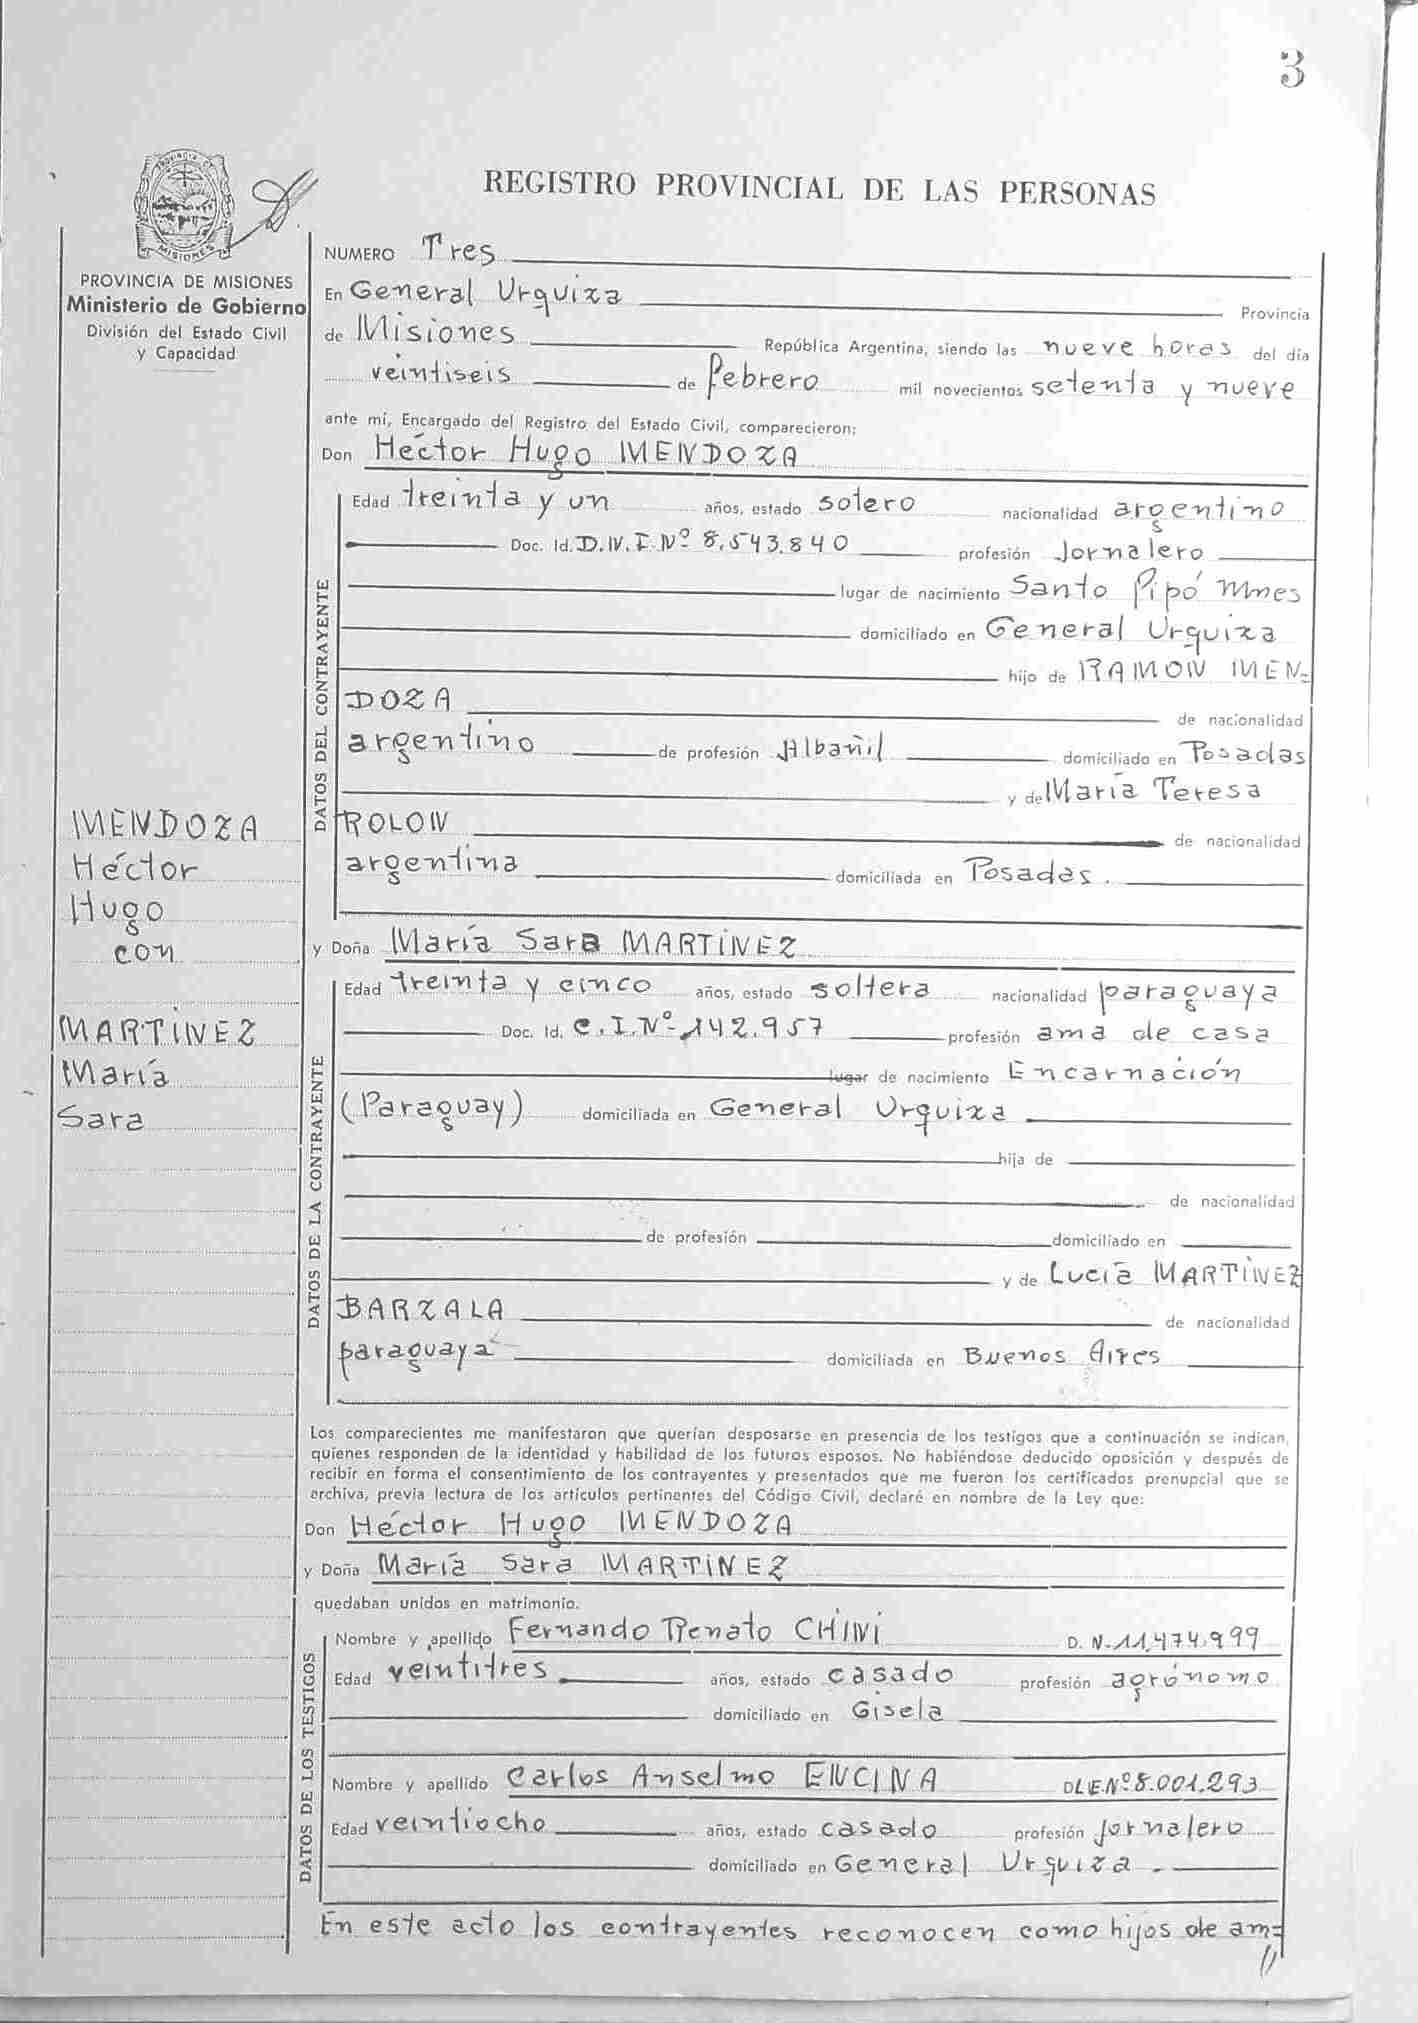 3
PROVINCIA DE
MISIONES
REGISTRO PROVINCIAL DE LAS PERSONAS
PROVINCIA DE MISIONES
Ministerio de Gobierno
División del Estado Civil
y Capacidad
NUMERO Tres
En General Urquiza Provincia
de Misiones República Argentina, siendo las nueve horas del día
veintiseis de Febrero mil novecientos setenta y nueve
ante mí, Encargado del Registro del Estado Civil, comparecieron:
Don Héctor Hugo MENDOZA
DATOS DEL CONTRAYENTE
Edad treinta y un años, estado sotero nacionalidad argentino
Doc. Id. D.N.I. Nº 8.543.840 profesión Jornalero
lugar de nacimiento Santo Pipó Mnes
domiciliado en General Urquiza
hijo de RAMON MEN=
DOZA de nacionalidad
argentino de profesión Albañil domiciliado en Posadas
y de María Teresa
ROLON de nacionalidad
argentina domiciliada en Posadas.
MENDOZA
Héctor
Hugo
con
MARTINEZ
María
Sara
y Doña María Sara MARTINEZ
DATOS DE LA CONTRAYENTE
Edad treinta y cinco años, estado soltera nacionalidad paraguaya
Doc. Id. C.I.Nº 142.957 profesión ama de casa
lugar de nacimiento Encarnación
(Paraguay) domiciliada en General Urquiza
hija de
de nacionalidad
de profesión domiciliado en
y de Lucía MARTINEZ
BARZALA de nacionalidad
paraguaya domiciliada en Buenos Aires
Los comparecientes me manifestaron que querían desposarse en presencia de los testigos que a continuación se indican,
quienes responden de la identidad y habilidad de los futuros esposos. No habiéndose deducido oposición y después de
recibir en forma el consentimiento de los contrayentes y presentados que me fueron los certificados prenupcial que se
archiva, previa lectura de los artículos pertinentes del Código Civil, declaré en nombre de la Ley que:
Don Héctor Hugo MENDOZA
y Doña María Sara MARTINEZ
quedaban unidos en matrimonio.
DATOS DE LOS TESTIGOS
Nombre y apellido Fernando Renato CHINI D. N. 11.474.999
Edad veintitres años, estado casado profesión agrónomo
domiciliado en Gisela
Nombre y apellido Carlos Anselmo ENCINA DLE.Nº 8.001.293
Edad veintiocho años, estado casado profesión Jornalero
domiciliado en General Urquiza.
En este acto los contrayentes reconocen como hijos de am=
//